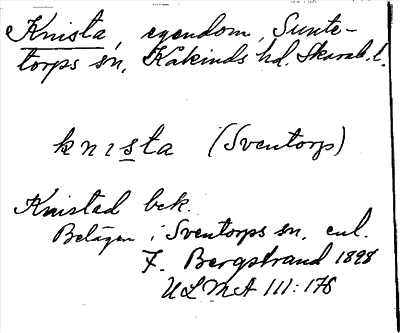 Knista, egendom, Sunte-
torps sn, Kåkinds hd. Skarab. l.
knısta (Sventorp)
Knistad bek.
Belägen i Sventorps sn, enl.
F. Bergstrand 1898
ULMA 111:178